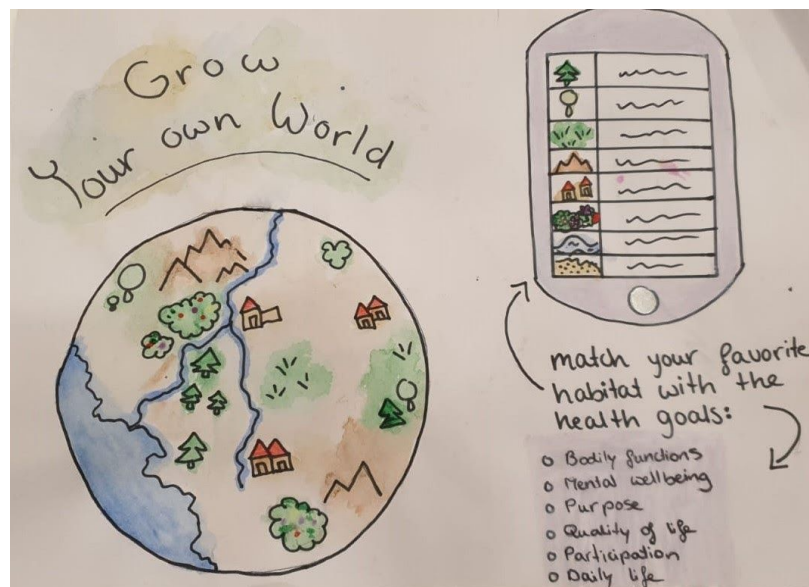 Grow
Your own World
match your favorite
habitat with the
health goals:
o Bodily functions
o Mental wellbeing
o Purpose
o Quality of life
o Participation
o Daily life